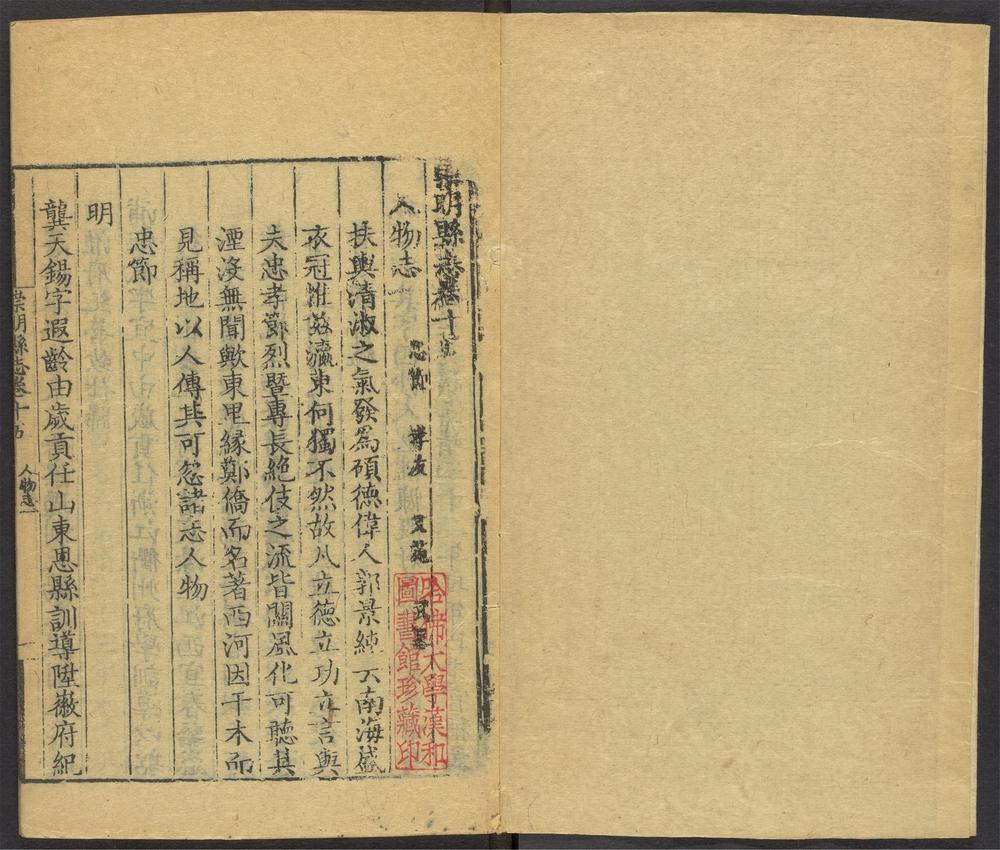 崇明縣志卷十五
人物志 忠節 孝友 文苑 武畧
扶輿清淑之氣發爲碩德偉人郭景純云南海盛
衣冠惟茲瀛東何獨不然故凡立德立功立言與
夫忠孝節烈暨專長絶伎之流皆關風化可聽其
湮沒無聞歟東里縁鄭僑而名著西河因干木而
見稱地以人傳其可忽諸志人物
忠節
明
龔天錫字遐齡由歲貢任山東恩縣訓導陞徽府紀
崇明縣志卷十五 人物志 一
哈佛大學漢和
圖書館珍藏印